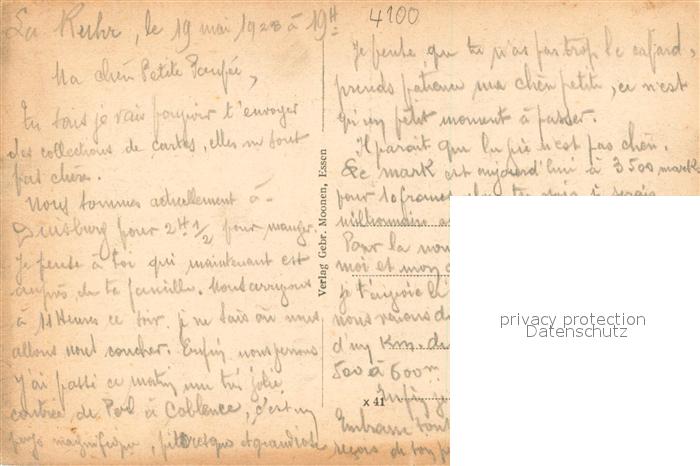 La Ruhr, le 19 mai 1923 à 19H
4100
Ma chère Petite Poupée,
Tu sais je vais pouvoir t'envoyer
des collections de cartes, elles ne sont
pas chères.
Nous sommes actuellement à
Duisburg pour 2H 1/2 pour manger.
Je pense à toi qui maintenant est
auprès de ta famille. Nous arrivons
à 11 Heures ce soir, je ne sais où nous
allons nous coucher. Enfin nous verrons
J'ai passé ce matin une très jolie
contrée de à Coblence, c'est un
pays magnifique, pittoresque et grandiose
Verlag Gebr. Moonen, Essen
x 41
Je pense que tu n'as pas trop le cafard,
prends patience ma chère petite, ce n'est
qu'un petit moment à passer.
Il parait que la vie n'est pas chère.
Le mark est aujourd'hui à 3500 marks
pour 10 francs, tu vois je serais
millionnaire
Pour la
moi et mon
je t'envoie
nous
d'un km. de
500 à 600m
Embrasse tout
reçois de ton
privacy protection
Datenschutz